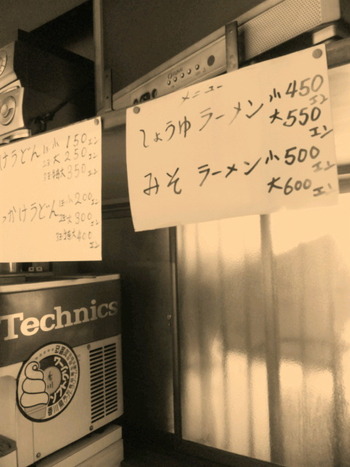 けうどん 小 150エン
大 250エン
特大 350エン
っかけうどん 小 200エン
大 300エン
特大 400エン
メニュー
しょうゆ ラーメン 小 450エン
大 550エン
みそ ラーメン 小 500エン
大 600エン
Technics